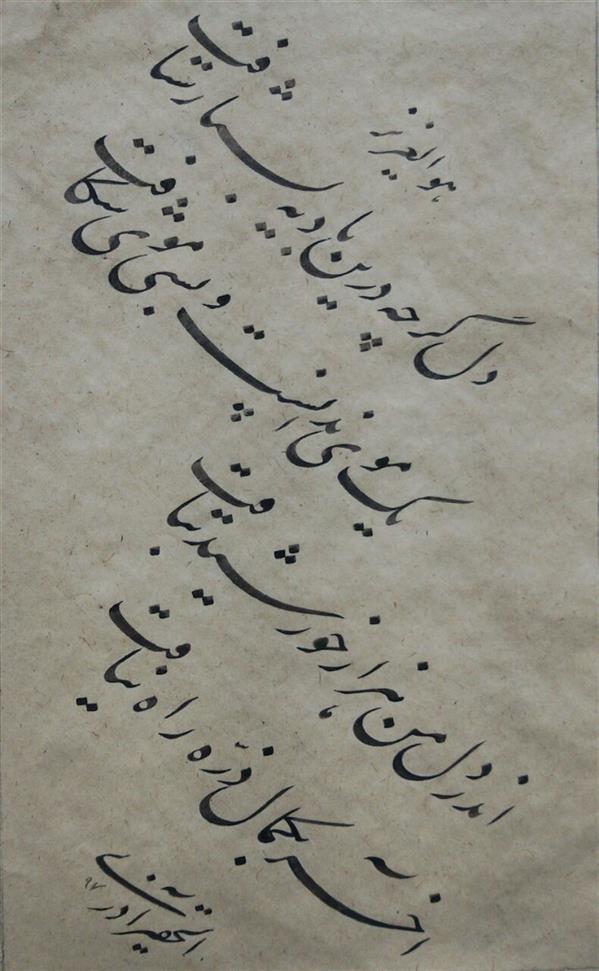 هو العزیز
دل گرچه در این بادیه بسیار شتافت
یک موی ندانست و بسی موی شکافت
اندر دل من هزار خورشید بتافت
آخر به کمال ذره راه نیافت
الحقیر
۹۷